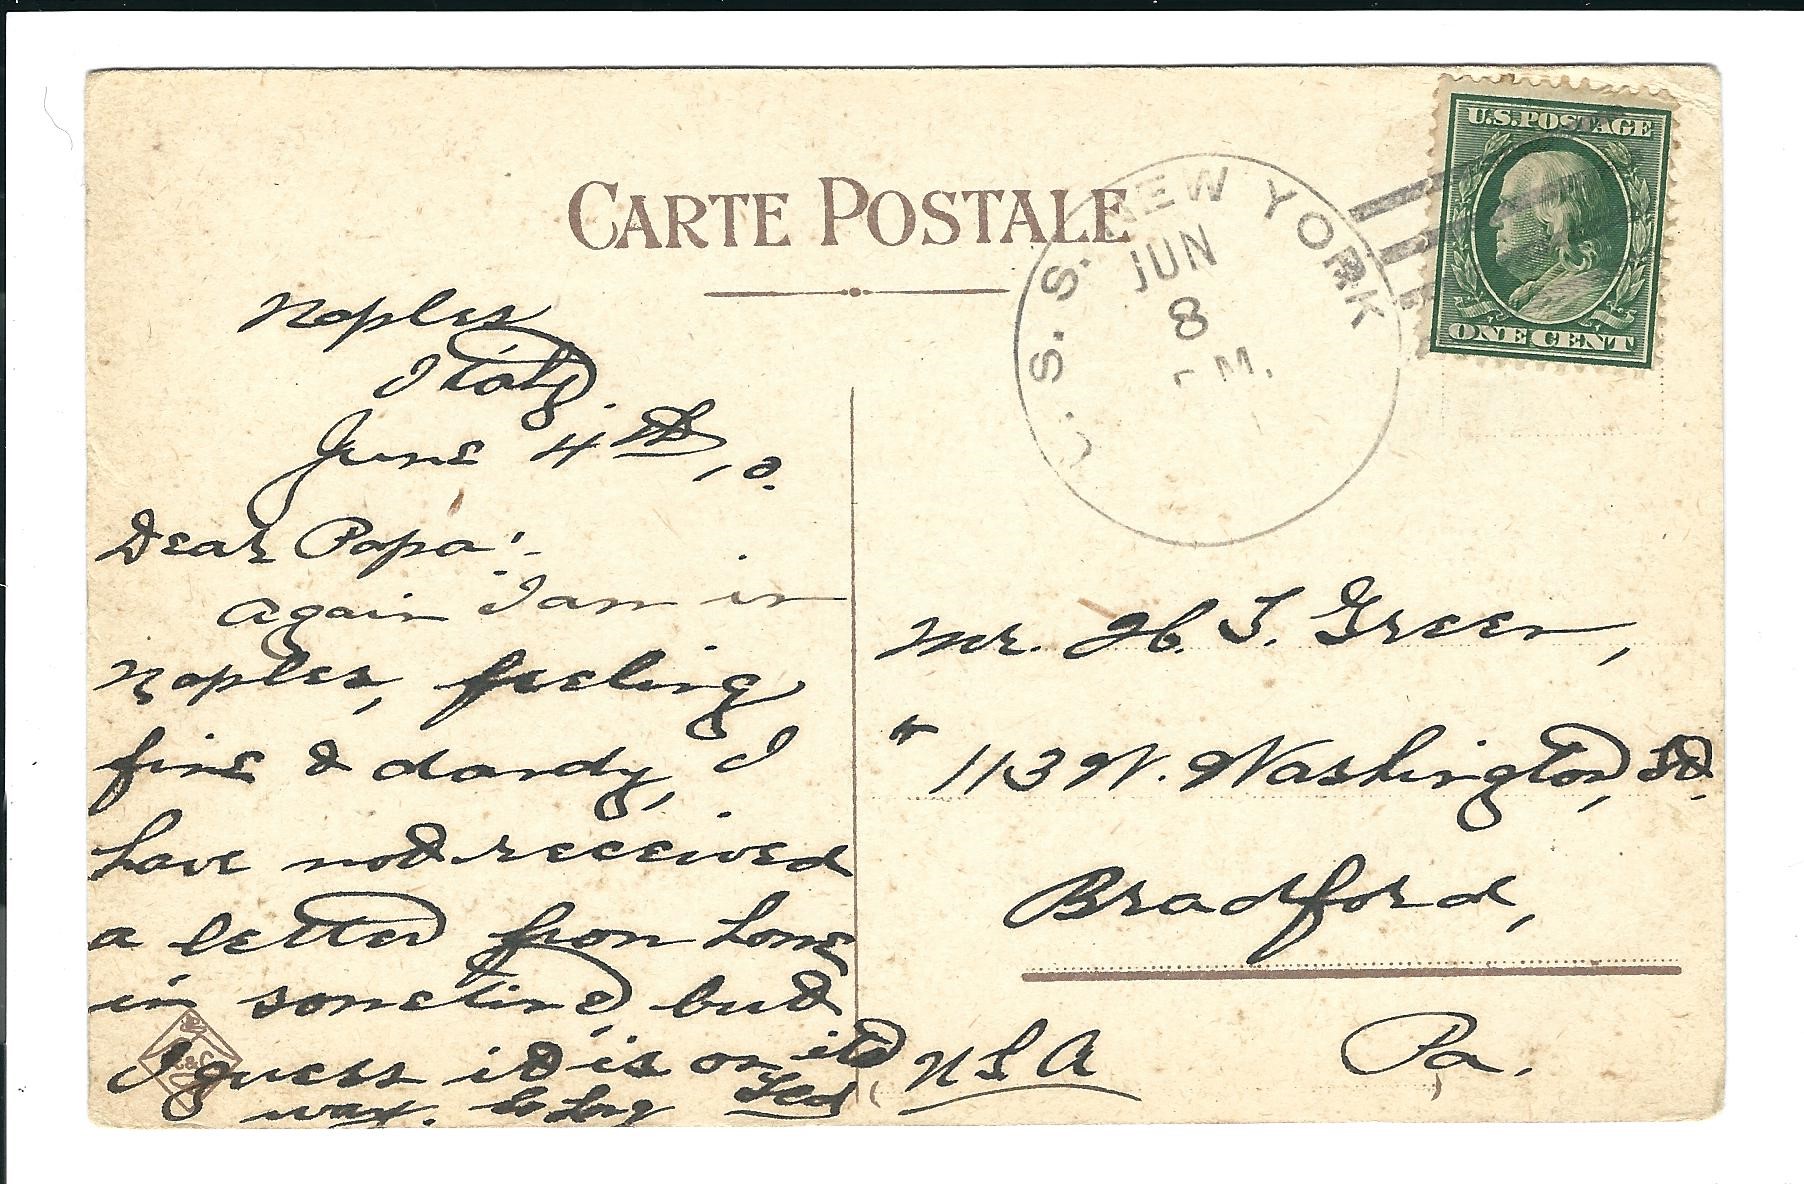 CARTE POSTALE
U.S. POSTAGE
ONE CENT
U. S. S. NEW YORK
JUN
8
M.
Naples
Italy.
June 4th, 10.
Dear Papa:-
Again I am in
Naples, feeling
fine & dandy, I
have not received
a letter from home
in sometime, but
I guess it is on its
way. So long Ted
Mr. H. T. Green,
113 W. Washington, St.
Bradford,
Pa.
U S A